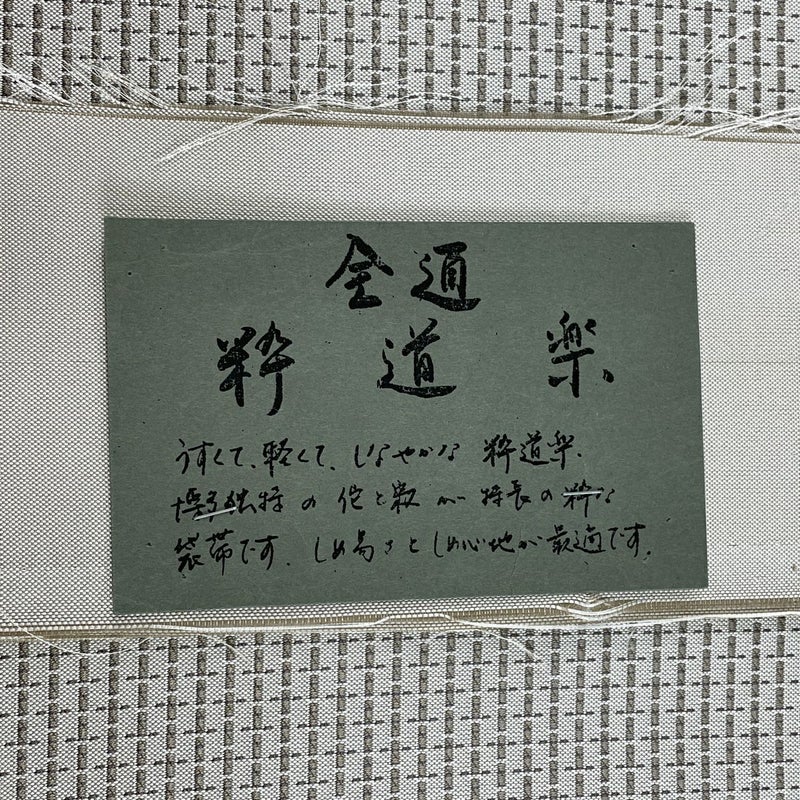 全通
粋道楽
うすくて、軽くて、しなやかな 粋道楽。
博多独特の佗と寂が特長の粋な
袋帯です。しめ易さとしめ心地が最適です。